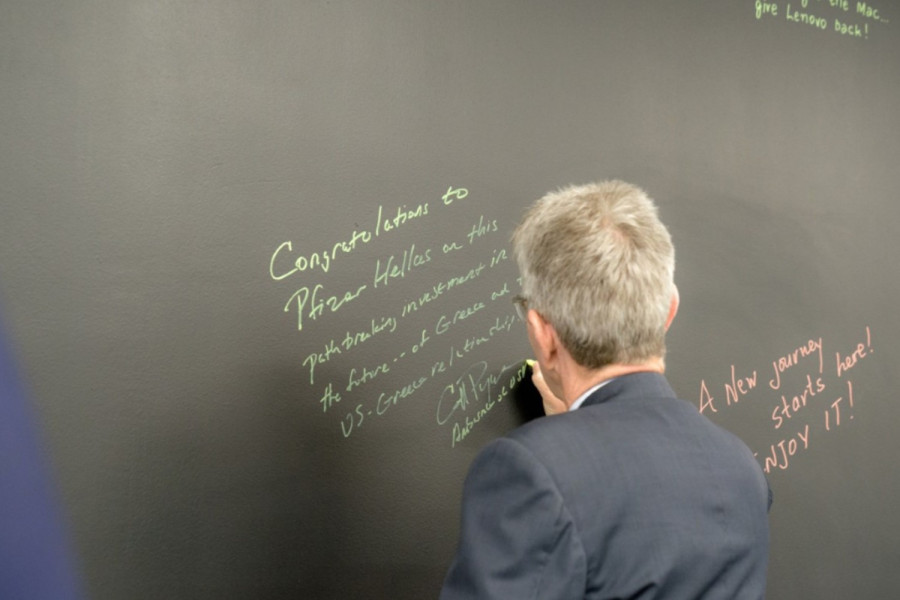 the Mac...
give Lenovo back!
Congratulations to
Pfizer Hellas on this
pathbreaking investment in
the future -- of Greece and
US-Greece relationship
A New journey
starts here!
ENJOY IT!